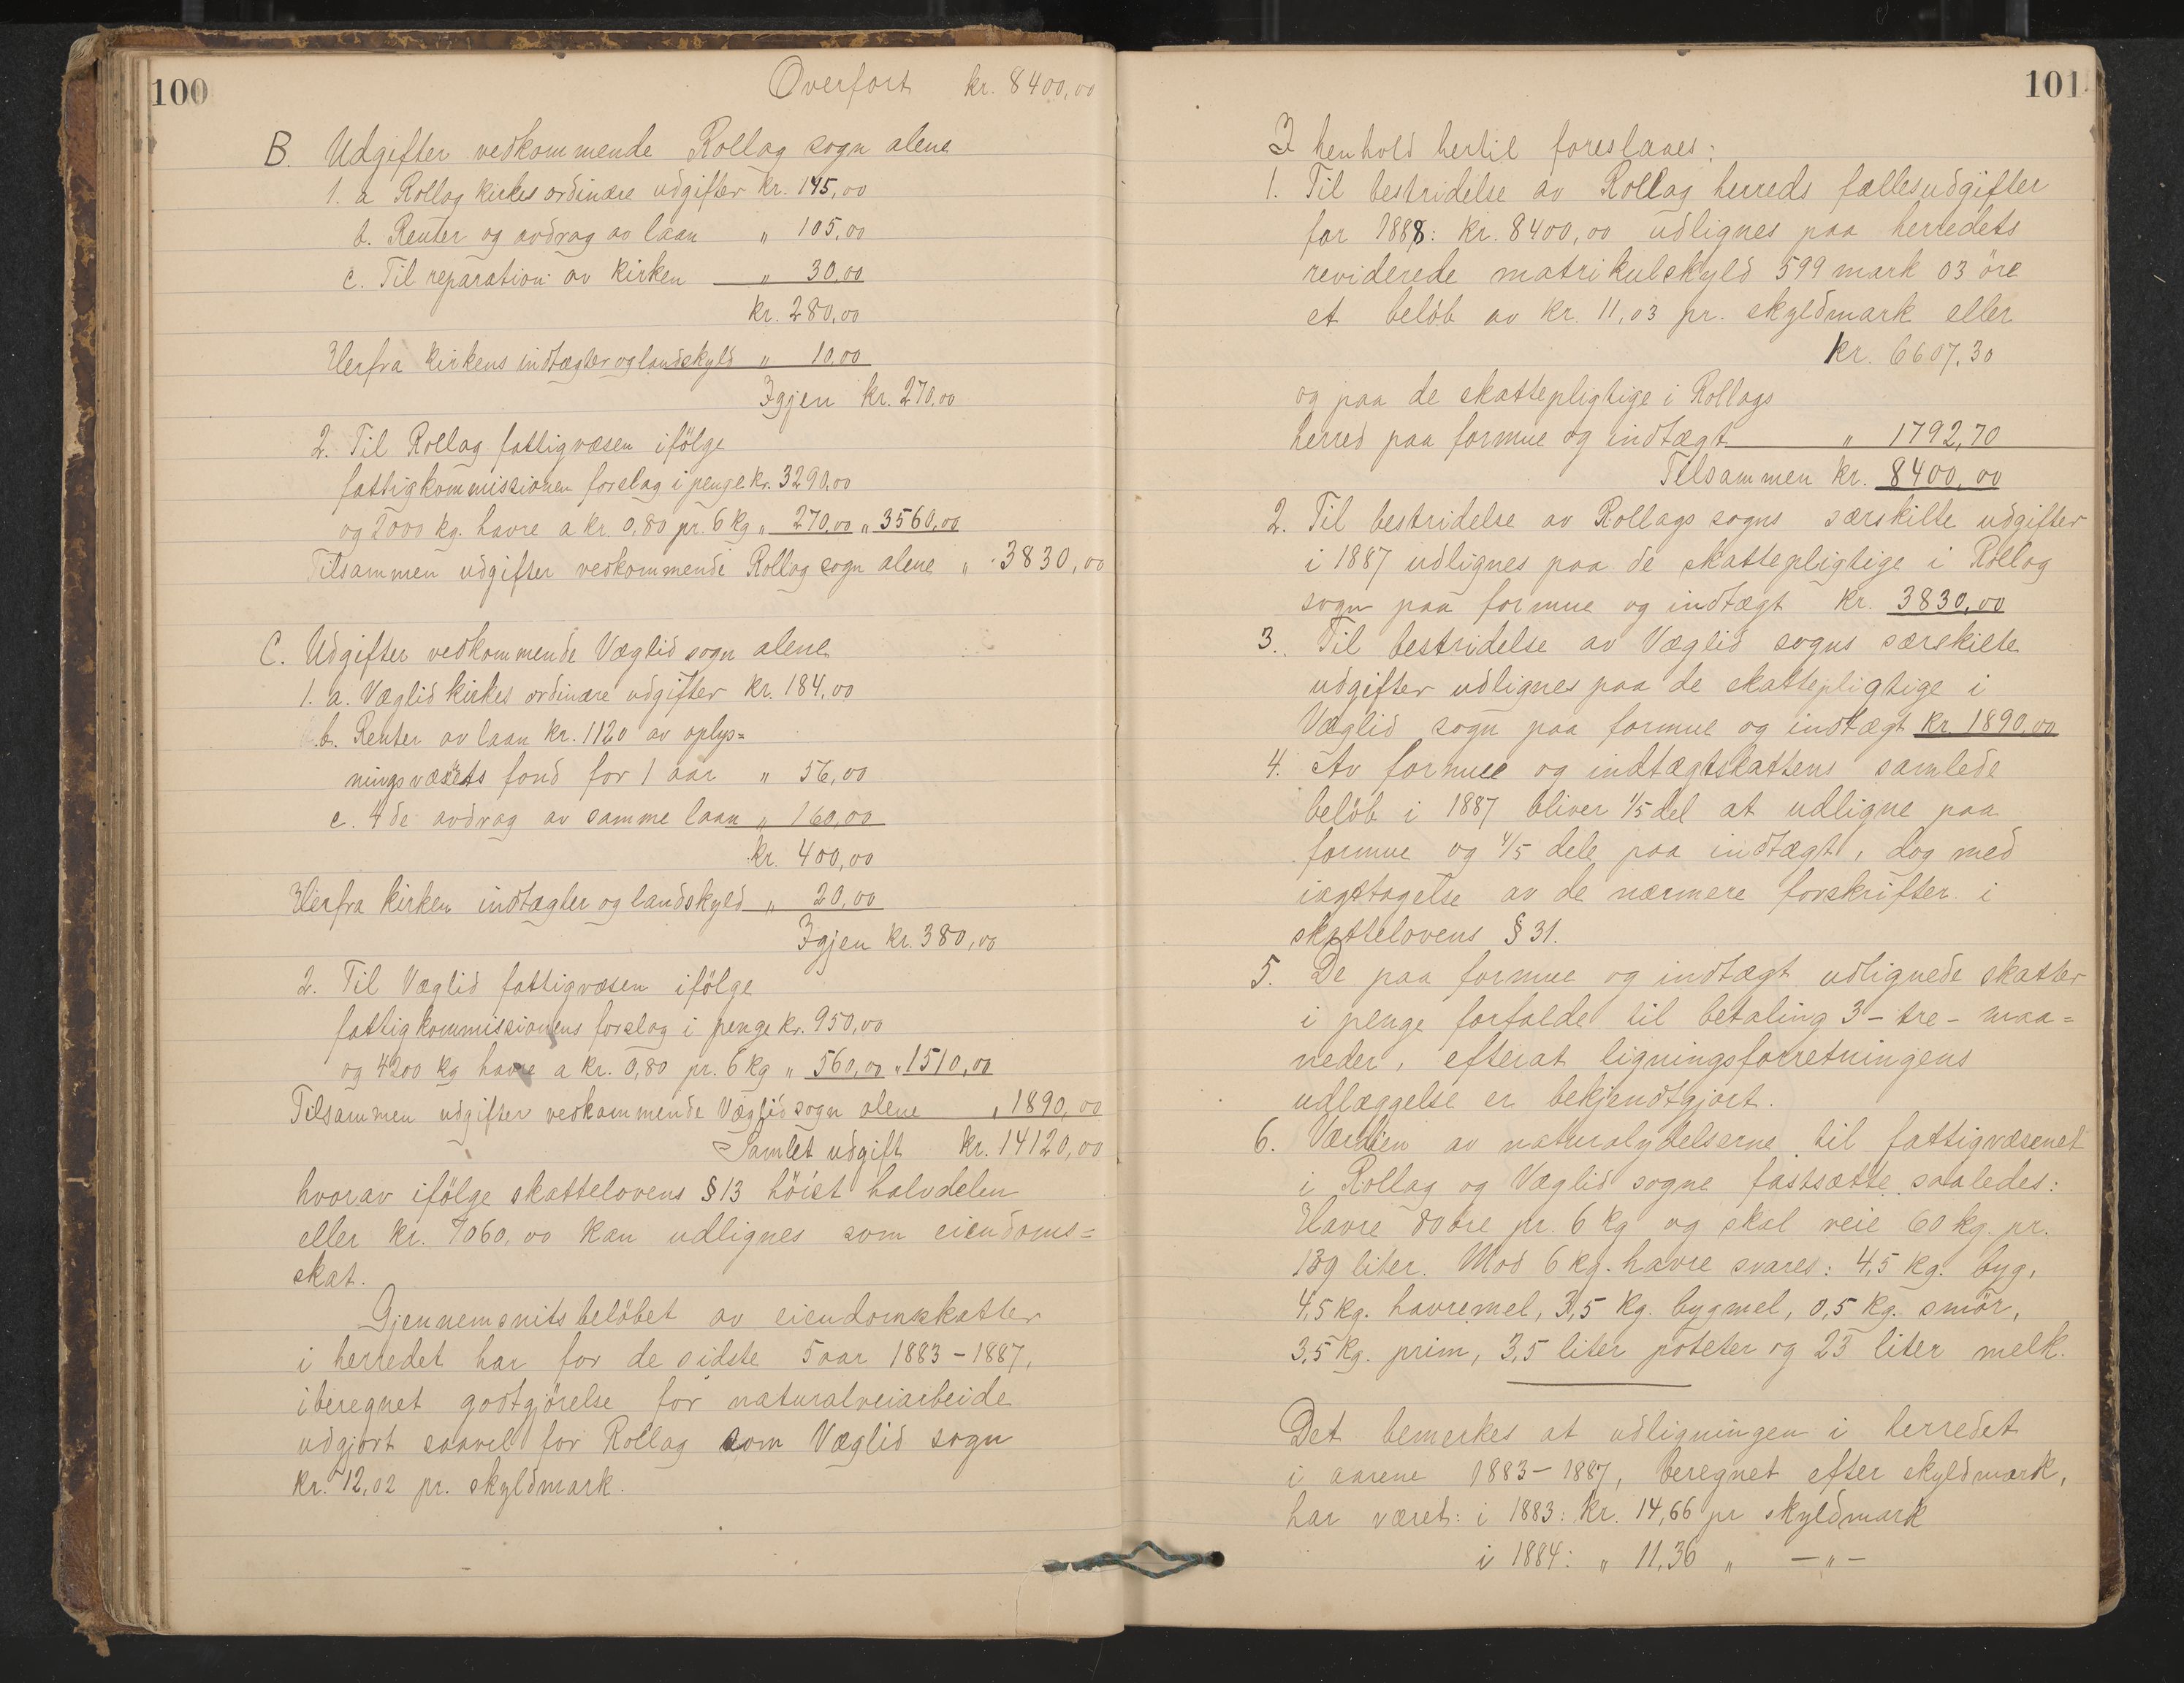 100
Overfört kr. 8400,00
B. Udgifter vedkommende Rollag sogn alene
1. a Rollag kirkes ordinære udgifter kr. 145,00
b. Renter og avdrag av laan " 105,00
c. Til reparation av kirken " 30,00
kr. 280,00
Herfra kirkens indtægter og landskyld " 10,00
Igjen kr. 270,00
2. Til Rollag fattigvæsen ifölge
fattigkommissionen forslag i penge kr. 3290,00
og 2000 kg. havre a kr. 0,80 pr. 6 kg " 270,00 " 3560,00
Tilsammen udgifter vedkommende Rollag sogn alene " 3830,00
C. Udgifter vedkommende Væglid sogn alene
1. a. Væglid kirkes ordinære udgifter kr. 184,00
b. Renter av laan kr. 1120 av oplys=
ningsvæsets fond for 1 aar " 56,00
c. 4de avdrag av samme laan " 160,00
kr. 400,00
Herfra kirken indtægter og landskyld " 20,00
Igjen kr. 380,00
2. Til Væglid fattigvæsen ifölge
fattigkommissionens forslag i penge kr. 950,00
og 4200 kg havre a kr. 0,80 pr. 6 kg " 560,00 " 1510,00
Tilsammen udgifter vedkommende Væglid sogn alene " 1890,00
Samlet udgift kr. 14120,00
hvorav ifölge skattelovens § 13 höist halvdelen
eller kr. 7060,00 kan udlignes som eiendoms=
skat.
Gjennemsnitsbelöbet av eiendomsskatter
i herredet har for de sidste 5 aar 1883-1887,
iberegnet godtgjörelse for naturalveiarbeide
udgjort saavel for Rollag som Væglid sogn
kr. 12,02 pr. skyldmark.
101
I henhold hertil foreslaaes:
1. Til bestridelse av Rollag herreds fællesudgifter
for 1888: kr. 8400,00 udlignes paa herredets
reviderede matrikulskyld 599 mark 03 öre
et belöb av kr. 11,03 pr. skyldmark eller
kr. 6607,30
og paa de skattepligtige i Rollags
herred paa formue og indtægt " 1792,70
Tilsammen kr. 8400,00
2. Til bestridelse av Rollags sogns særskilte udgifter
i 1887 udlignes paa de skattepligtige i Rollag
sogn paa formue og indtægt kr. 3830,00
3. Til bestridelse av Væglid sogns særskilte
udgifter udlignes paa de skattepligtige i
Væglid sogn paa formue og indtægt kr. 1890,00
4. Av formue og indtægtskattens samlede
belöb i 1887 bliver 1/5 del at udligne paa
formue og 4/5 dele paa indtægt, dog med
iagttagelse av de nærmere forskrifter i
skattelovens § 31.
5. De paa formue og indtægt udlignede skatter
i penge forfalde til betaling 3 - tre - maa=
neder, efterat ligningsforretningens
udlæggelse er bekjendtgjort.
6. Værdien av naturalydelserne til fattigvæsenet
i Rollag og Væglid sogne fastsætte saaledes:
Havre 80 öre pr. 6 kg og skal veie 60 kg. pr.
139 liter. Mod 6 kg. havre svares: 4,5 kg. byg,
4,5 kg. havremel, 3,5 kg. bygmel, 0,5 kg. smör,
3,5 kg. prim, 3,5 liter poteter og 25 liter melk.
Det bemerkes at udligningen i herredet
i aarene 1883-1887, beregnet efter skyldmark,
har været: i 1883: kr. 14,66 pr skyldmark
i 1884: " 11,36 " - " -